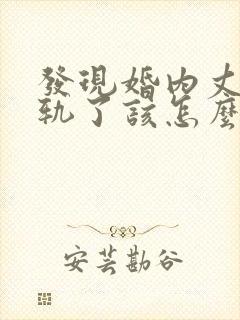 發現婚內丈
軌了該怎麼
安芸勘谷